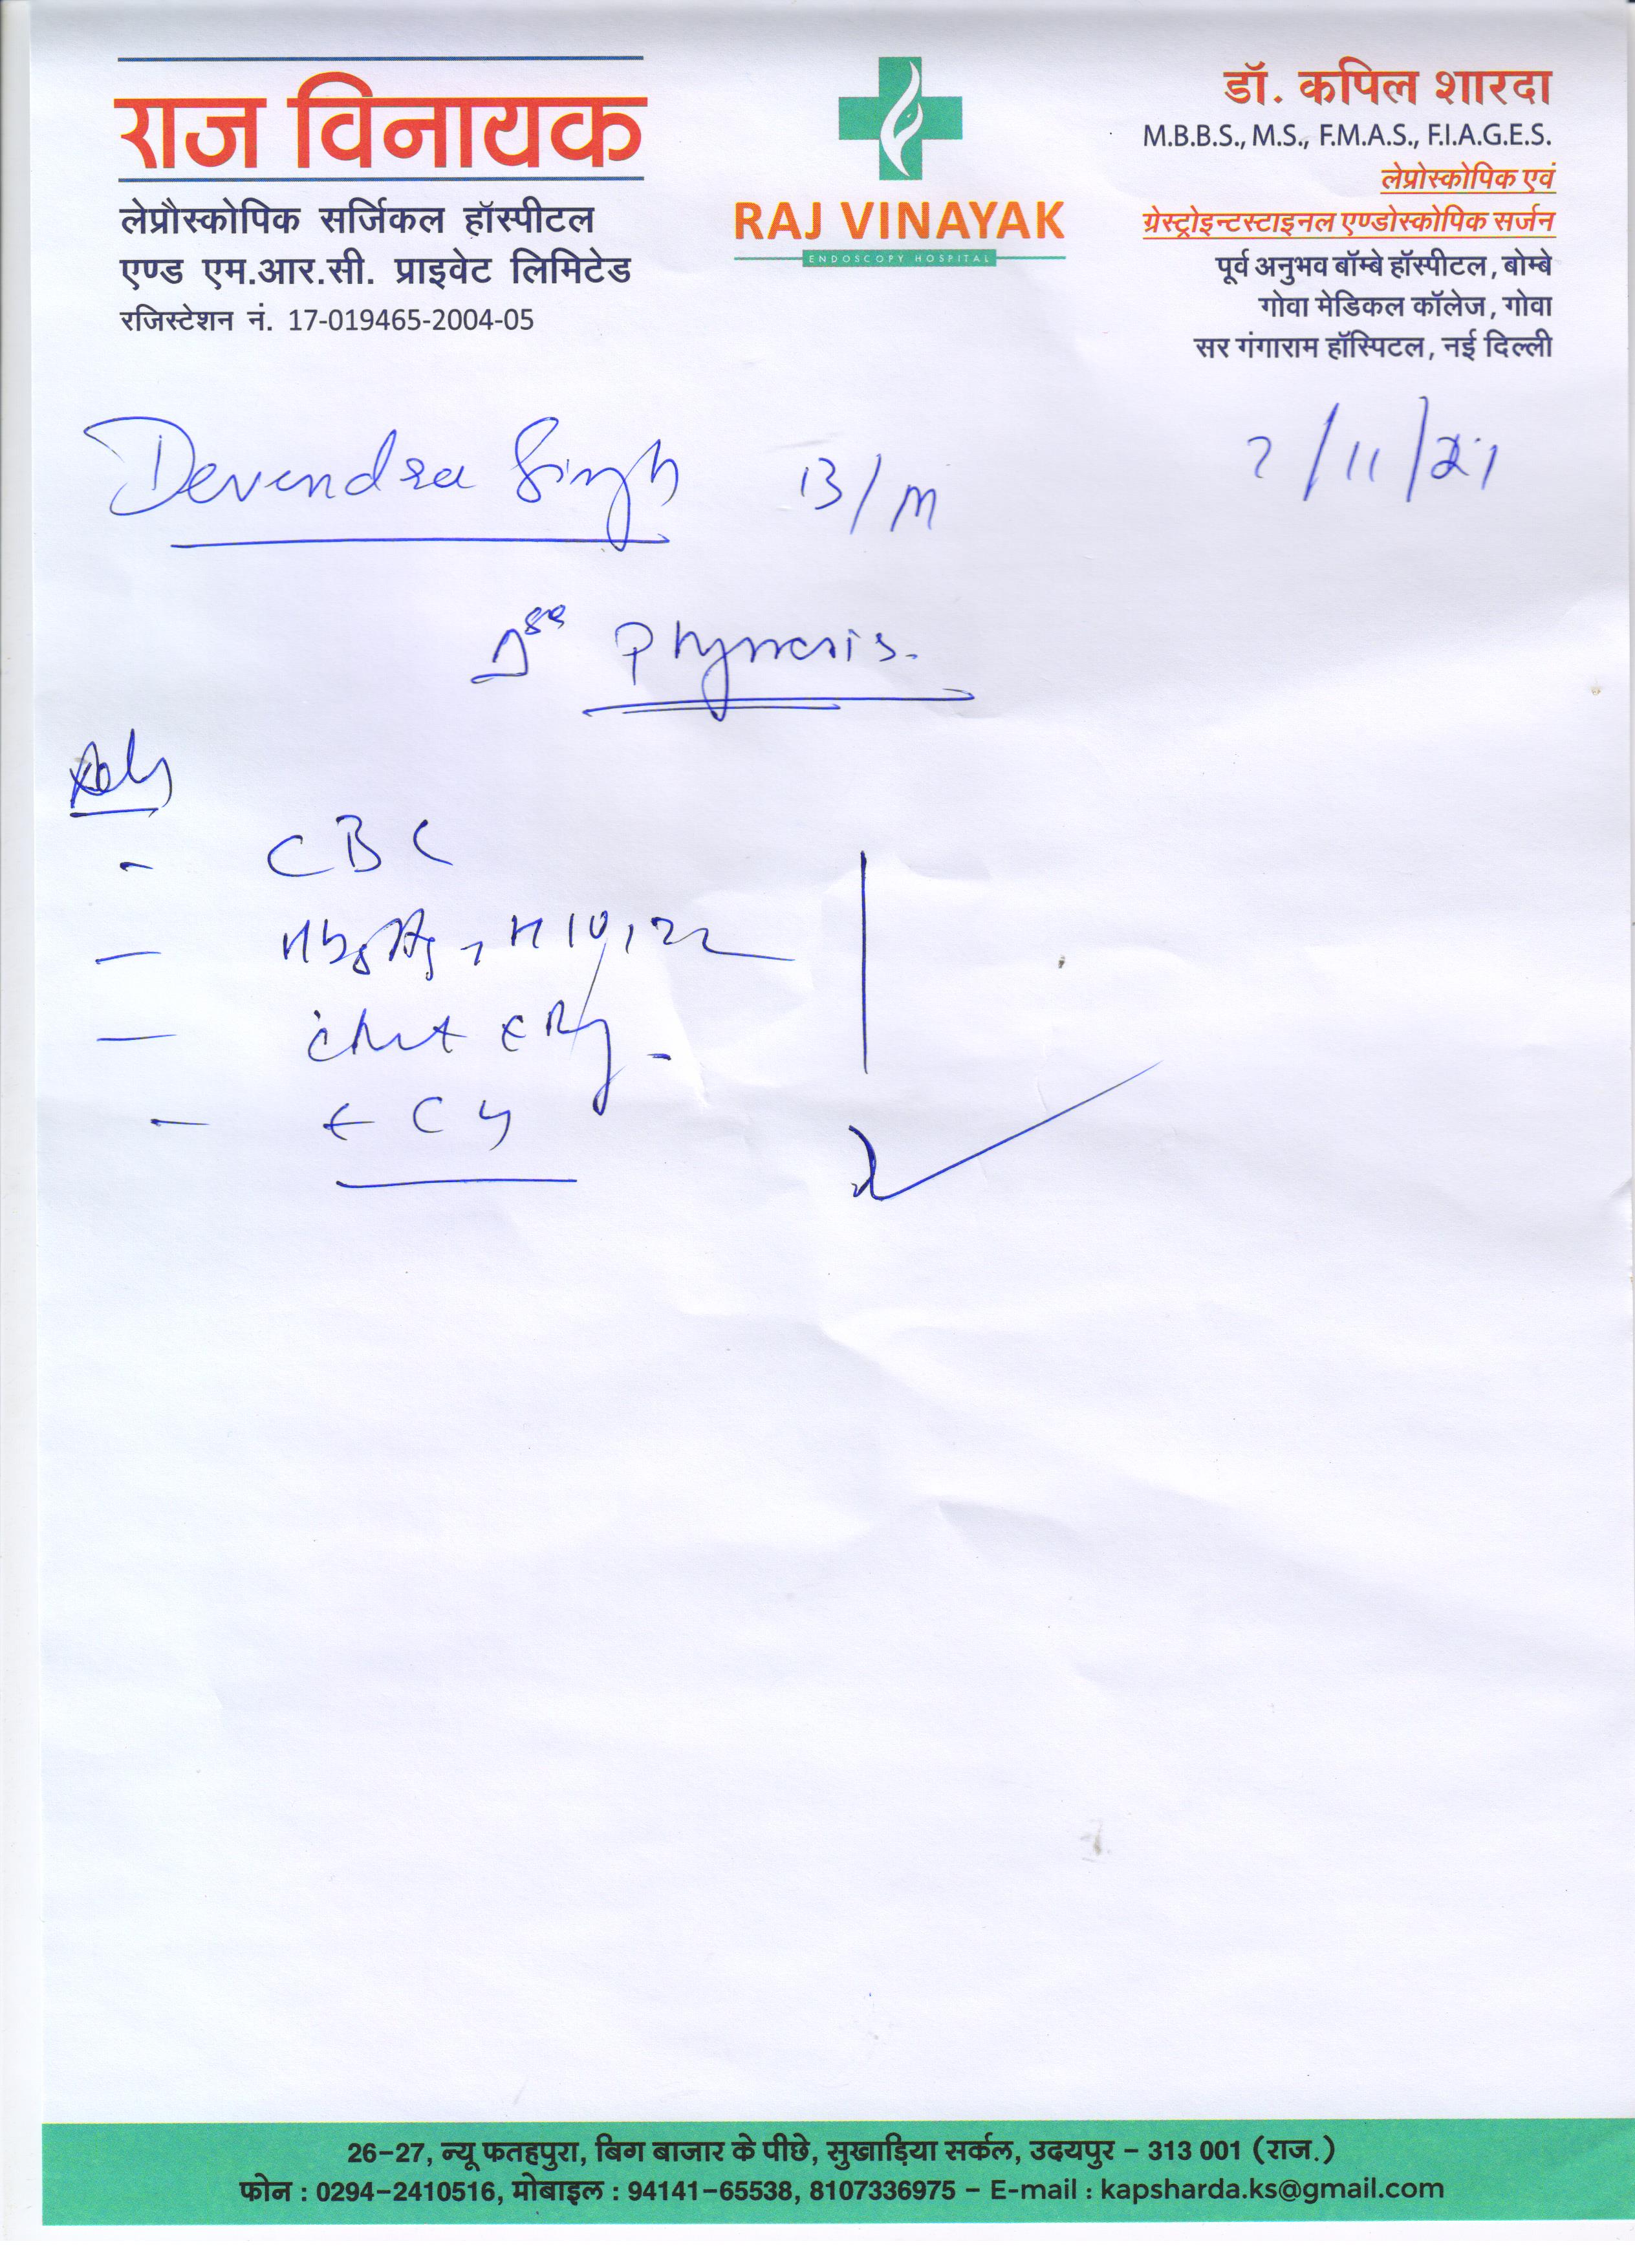 राज विनायक
लेप्रौस्कोपिक सर्जिकल हॉस्पीटल
एण्ड एम.आर.सी. प्राइवेट लिमिटेड
रजिस्टेशन नं. 17-019465-2004-05
RAJ VINAYAK
ENDOSCOPY HOSPITAL
डॉ. कपिल शारदा
M.B.B.S., M.S., F.M.A.S., F.I.A.G.E.S.
लेप्रोस्कोपिक एवं
ग्रेस्ट्रोइन्टस्टाइनल एण्डोस्कोपिक सर्जन
पूर्व अनुभव बॉम्बे हॉस्पीटल, बोम्बे
गोवा मेडिकल कॉलेज, गोवा
सर गंगाराम हॉस्पिटल, नई दिल्ली
Devendra Singh 13/M
Phymosis.
- CBC
- HbsAg,
-
- ECG
26-27, न्यू फतहपुरा, बिग बाजार के पीछे, सुखाड़िया सर्कल, उदयपुर - 313 001 (राज.)
फोन : 0294-2410516, मोबाइल : 94141-65538, 8107336975 - E-mail : kapsharda.ks@gmail.com